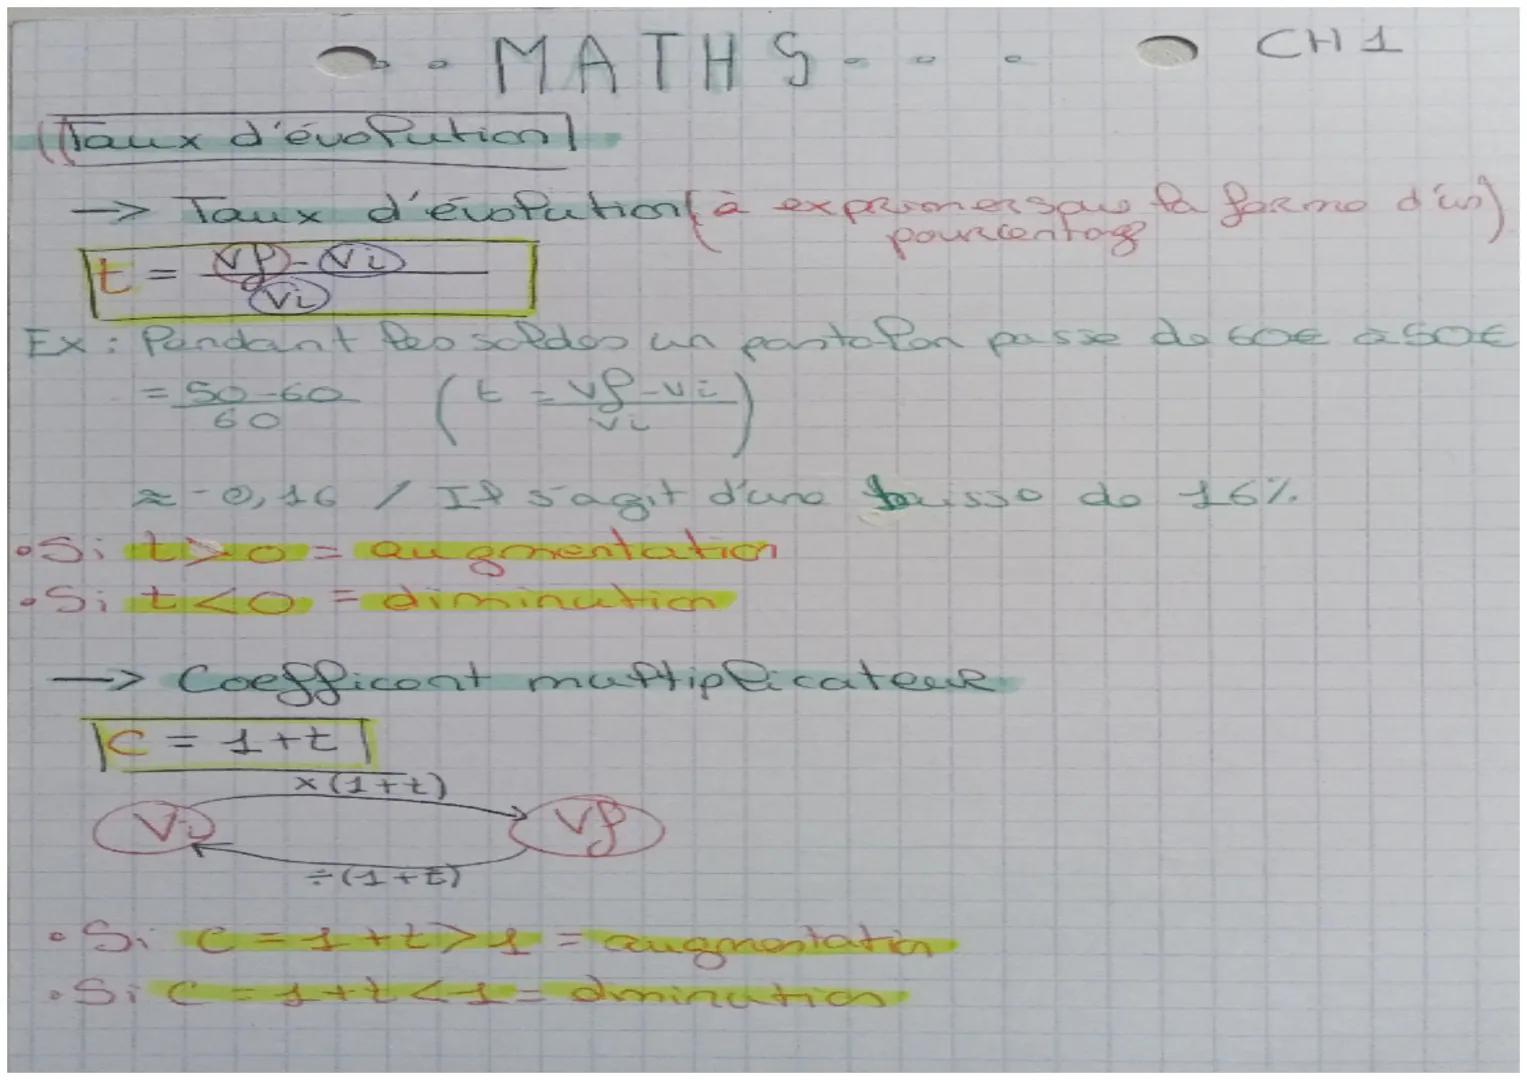 MATHS CH 1
Taux d'évolution
→ Taux d'évolution (à exprimer sous la forme d'un
pourcentage)
t = Vf - Vi
Vi
Ex : Pendant les soldes un pantalon passe de 60€ à 50€
= 50-60 ( t = Vf-Vi )
60 Vi
≈ -0,16 / Il s'agit d'une baisse de 16%.
• Si t > 0 = augmentation
• Si t < 0 = diminution
→ Coefficent multiplicateur
C = 1+t
×(1+t)
Vi Vf
÷(1+t)
• Si C = 1+t > 1 = augmentation
• Si C = 1+t < 1 = dminution